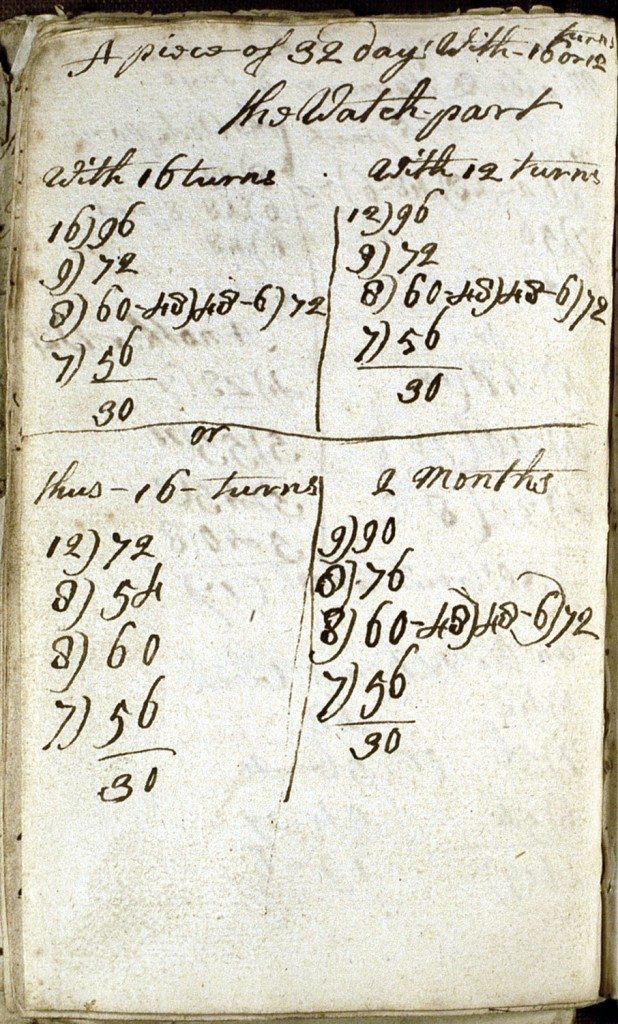 A piece of 32 days With 16 or 12 turns
the Watch part
With 16 turns
16) 96
9) 72
8) 60-48) 48-6) 72
7) 56
30
With 12 turns
12) 96
9) 72
8) 60-48) 48-6) 72
7) 56
30
or
thus - 16 - turns
12) 72
8) 54
8) 60
7) 56
30
2 Months
9) 90
8) 76
8) 60-48) 48-6) 72
7) 56
30